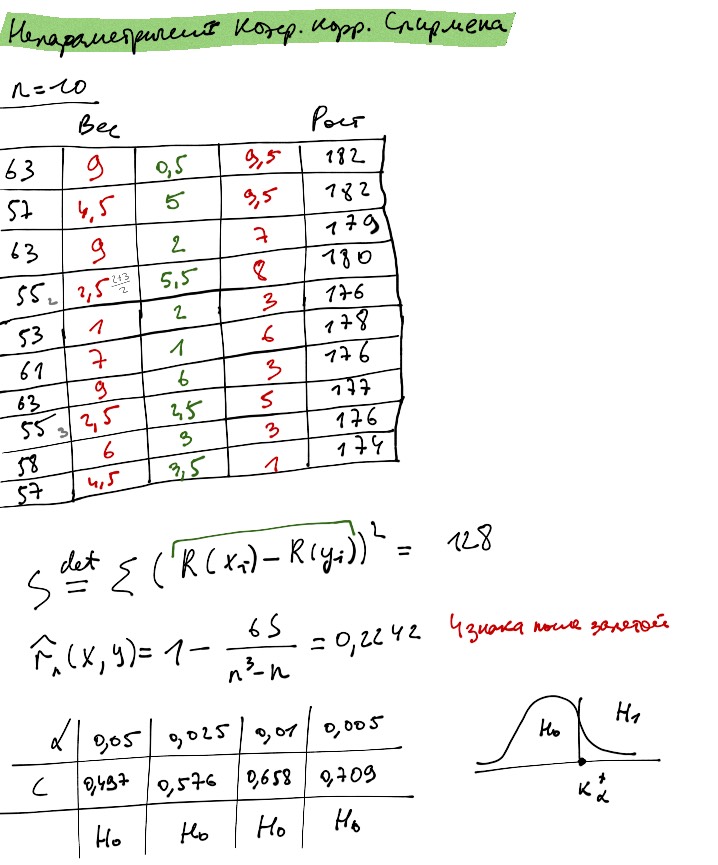 Непараметрический коэф. корр. Спирмена
n=10
Вес Рост
63 9 0,5 9,5 182
57 4,5 5 9,5 182
63 9 2 7 179
55 2 2,5 2+3/2 5,5 8 180
53 1 2 3 176
61 7 1 6 178
63 9 6 3 176
55 3 2,5 2,5 5 177
58 6 3 3 176
57 4,5 3,5 1 174
S det = Σ (R(xᵢ) – R(yᵢ))² = 128
r̂ₙ(x,y) = 1 – 6S / n³–n = 0,2242 4 знака после запятой
α 0,05 0,025 0,01 0,005
C 0,497 0,576 0,658 0,709
H₀ H₀ H₀ H₀
H₀ H₁
K⁺α